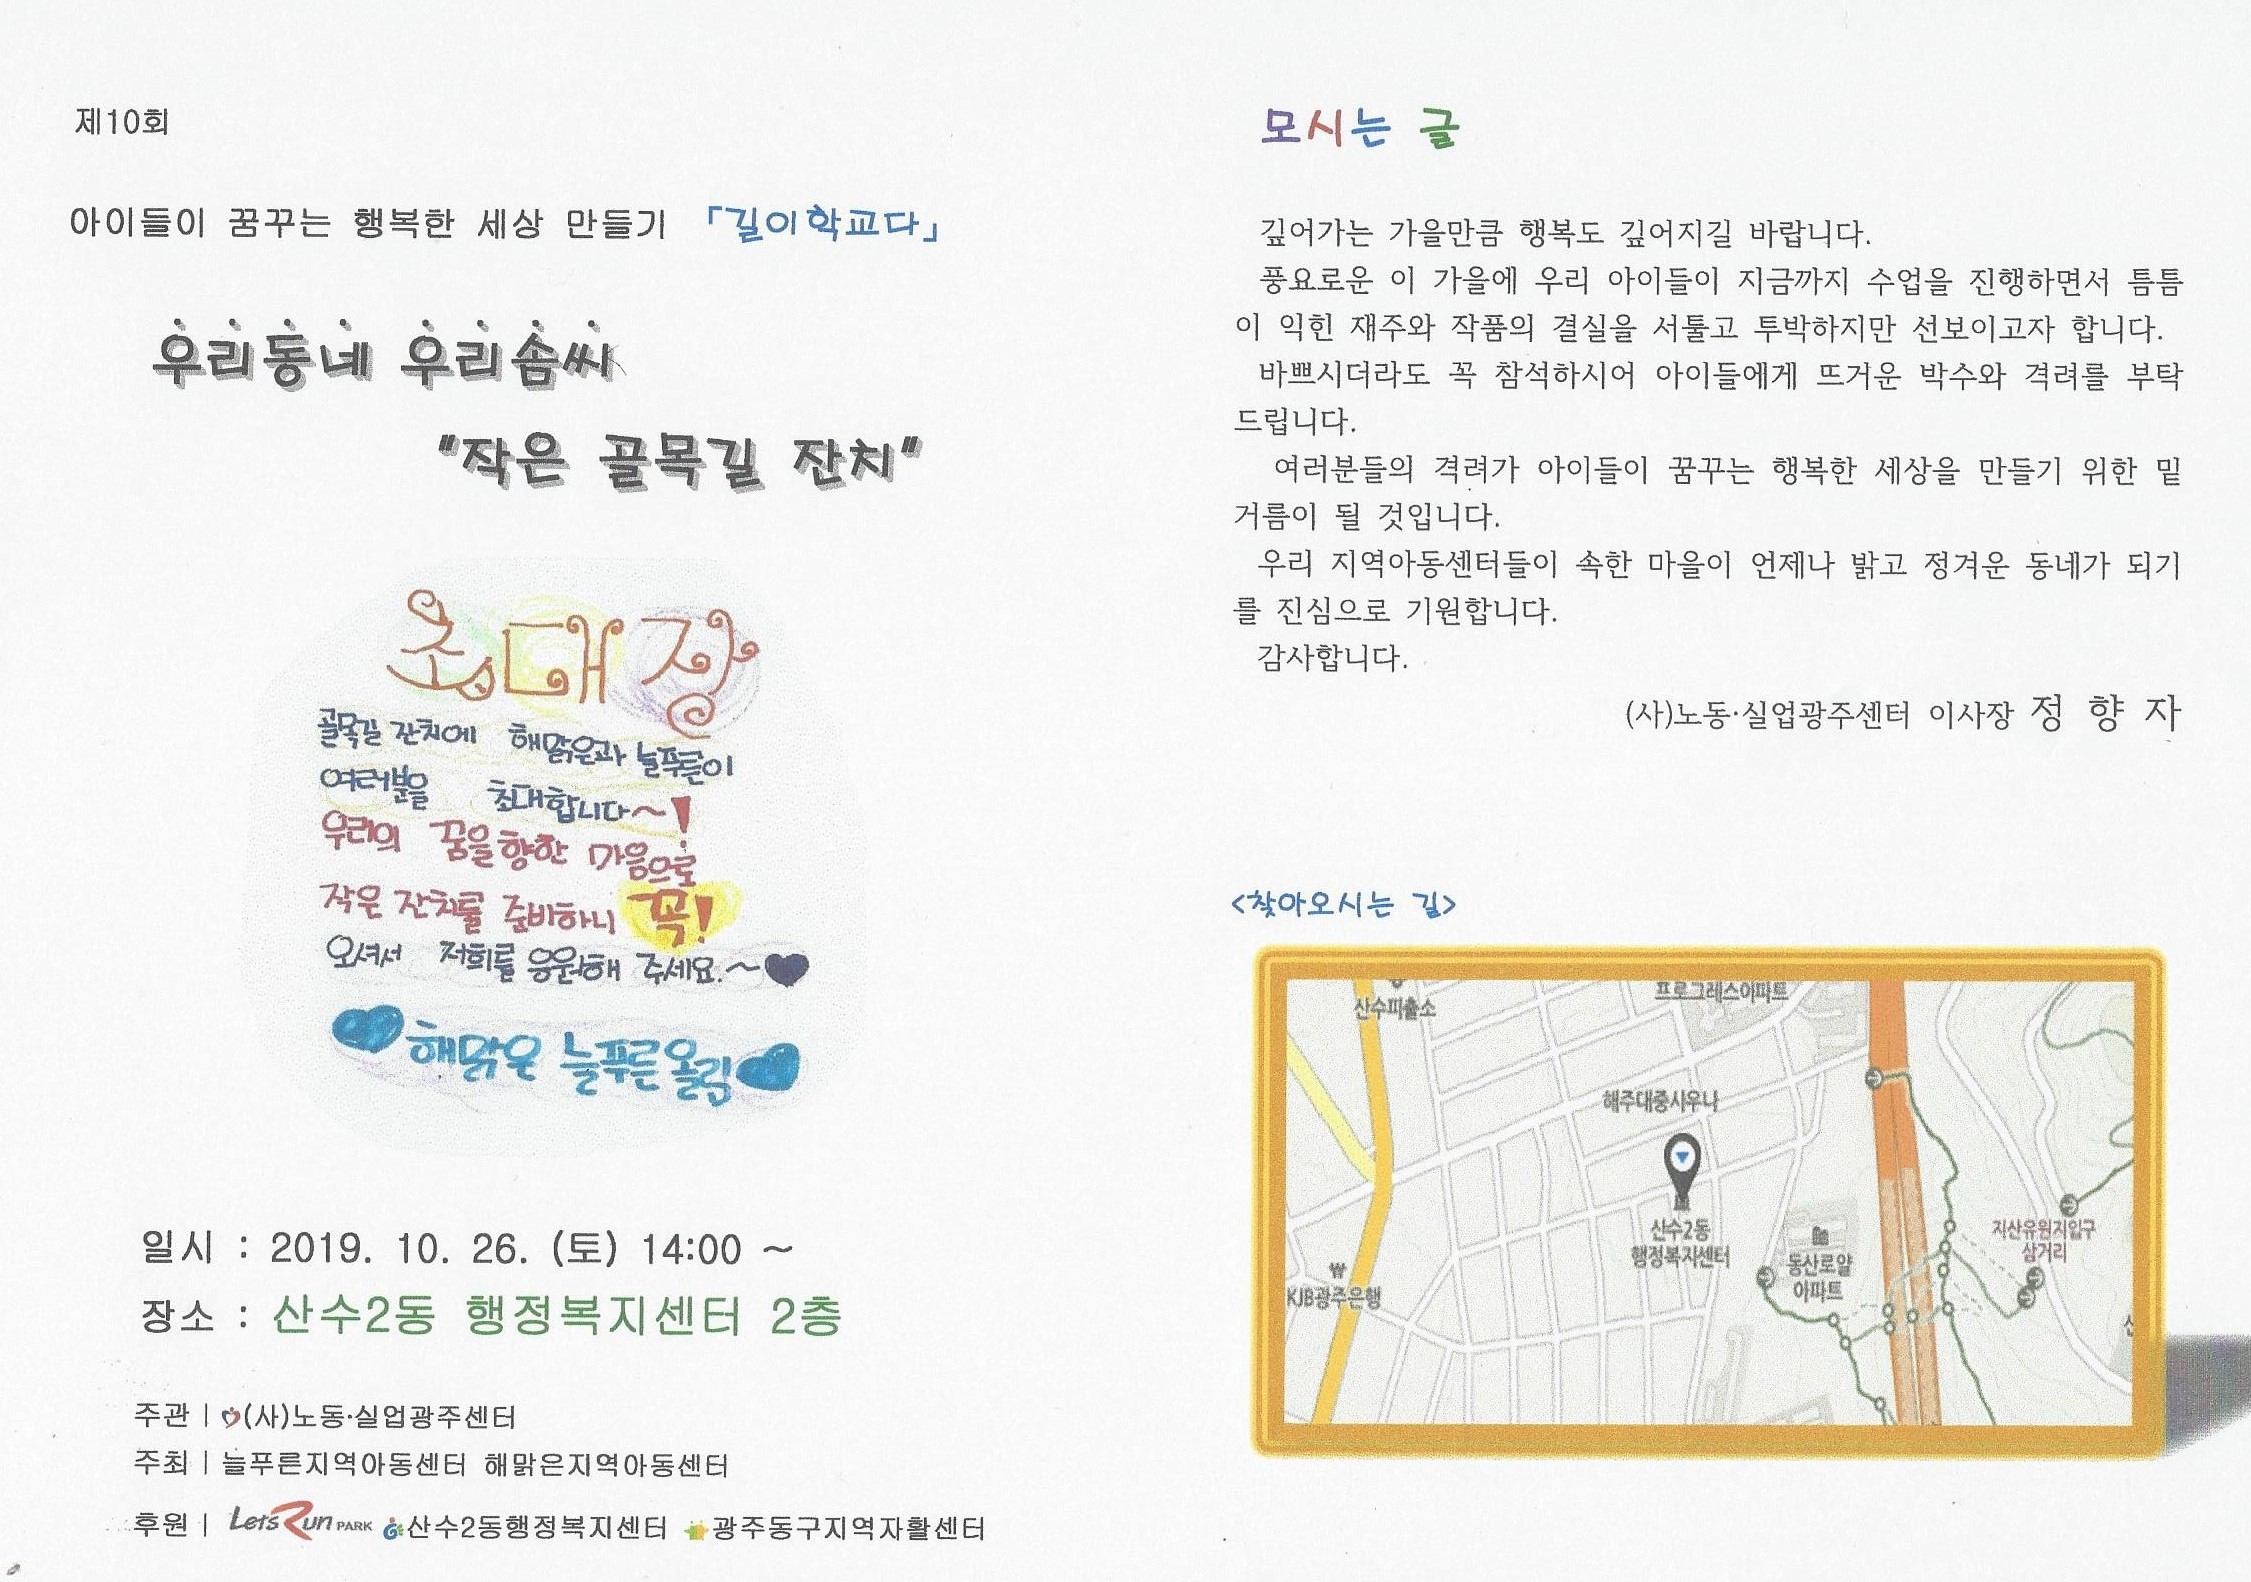 제10회
아이들이 꿈꾸는 행복한 세상 만들기 「길이학교다」
우리동네 우리솜씨
"작은 골목길 잔치"
초대장
골목길 잔치에 해맑은과 늘푸른이
여러분을 초대합니다~!
우리의 꿈을향한 마음으로
작은 잔치를 준비하니 꼭!
오셔서 저희를 응원해 주세요.~
해맑은 늘푸른올림
일시 : 2019. 10. 26. (토) 14:00 ~
장소 : 산수2동 행정복지센터 2층
주관 | (사)노동·실업광주센터
주최 | 늘푸른지역아동센터 해맑은지역아동센터
후원 | Let's Run PARK 산수2동행정복지센터 광주동구지역자활센터
모시는 글
깊어가는 가을만큼 행복도 깊어지길 바랍니다.
풍요로운 이 가을에 우리 아이들이 지금까지 수업을 진행하면서 틈틈
이 익힌 재주와 작품의 결실을 서툴고 투박하지만 선보이고자 합니다.
바쁘시더라도 꼭 참석하시어 아이들에게 뜨거운 박수와 격려를 부탁
드립니다.
여러분들의 격려가 아이들이 꿈꾸는 행복한 세상을 만들기 위한 밑
거름이 될 것입니다.
우리 지역아동센터들이 속한 마을이 언제나 밝고 정겨운 동네가 되기
를 진심으로 기원합니다.
감사합니다.
(사)노동·실업광주센터 이사장 정 향 자
<찾아오시는 길>
프로그레스아파트
산수파출소
해주대중사우나
산수2동
행정복지센터
동산로얄
아파트
지산유원지입구
삼거리
KJB광주은행